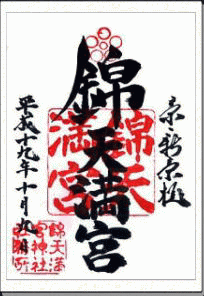 京・新京極
錦天満宮
錦天満宮
平成十九年十月九日
錦天満
宮神社
社務所